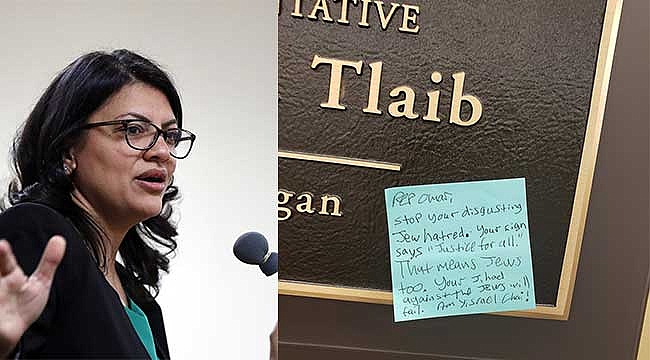 TATIVE
Tlaib
gan
REP Omar,
Stop your disgusting
Jew hatred. Your sign
says "Justice for all."
That means Jews
too. Your Jihad
against the Jews will
fail. Am Yisrael Chai!